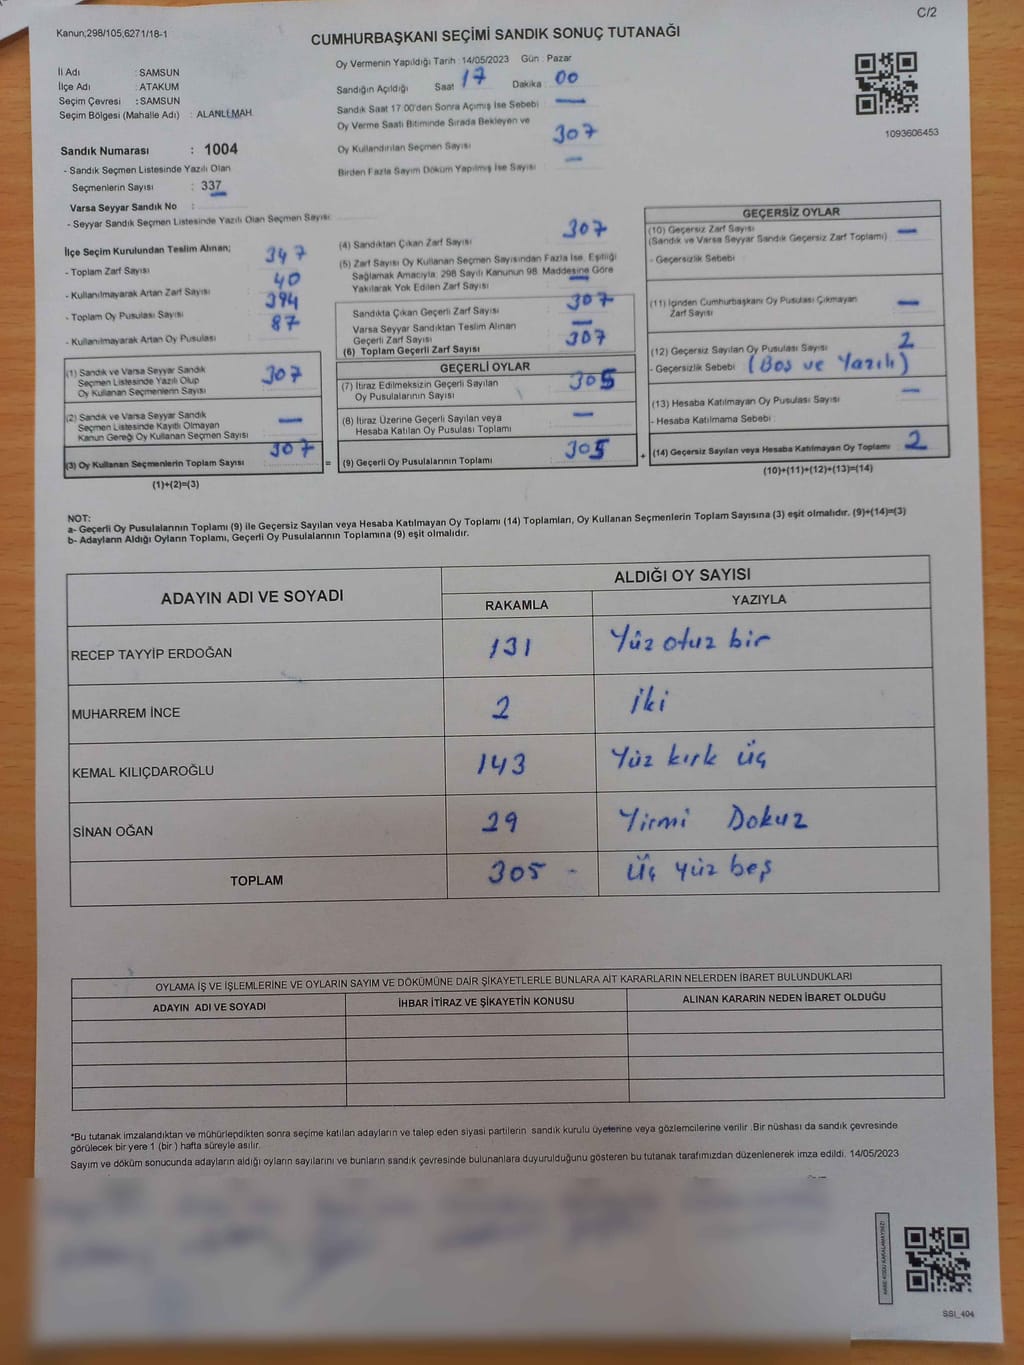 C/2
Kanun;298/105;6271/18-1
CUMHURBAŞKANI SEÇİMİ SANDIK SONUÇ TUTANAĞI
İl Adı : SAMSUN
İlçe Adı : ATAKUM
Seçim Çevresi : SAMSUN
Seçim Bölgesi (Mahalle Adı) : ALANLI MAH.
Sandık Numarası : 1004
- Sandık Seçmen Listesinde Yazılı Olan
Seçmenlerin Sayısı : 337
Varsa Seyyar Sandık No :
- Seyyar Sandık Seçmen Listesinde Yazılı Olan Seçmen Sayısı:
Oy Vermenin Yapıldığı Tarih : 14/05/2023 Gün : Pazar
Sandığın Açıldığı Saat 17 Dakika 00
Sandık Saat 17:00'den Sonra Açımış İse Sebebi : —
Oy Verme Saati Bitiminde Sırada Bekleyen ve
Oy Kullandırılan Seçmen Sayısı 307
Birden Fazla Sayım Döküm Yapılmış İse Sayısı —
1093606453
İlçe Seçim Kurulundan Teslim Alınan;
- Toplam Zarf Sayısı 347
- Kullanılmayarak Artan Zarf Sayısı 40
- Toplam Oy Pusulası Sayısı 394
- Kullanılmayarak Artan Oy Pusulası 87
(1) Sandık ve Varsa Seyyar Sandık
Seçmen Listesinde Yazılı Olup
Oy Kullanan Seçmenlerin Sayısı 307
(2) Sandık ve Varsa Seyyar Sandık
Seçmen Listesinde Kayıtlı Olmayan
Kanun Gereği Oy Kullanan Seçmen Sayısı —
(3) Oy Kullanan Seçmenlerin Toplam Sayısı 307
(1)+(2)=(3)
(4) Sandıktan Çıkan Zarf Sayısı 307
(5) Zarf Sayısı Oy Kullanan Seçmen Sayısından Fazla İse, Eşitliği
Sağlamak Amacıyla; 298 Sayılı Kanunun 98. Maddesine Göre
Yakılarak Yok Edilen Zarf Sayısı —
Sandıkta Çıkan Geçerli Zarf Sayısı 307
Varsa Seyyar Sandıktan Teslim Alınan
Geçerli Zarf Sayısı —
(6) Toplam Geçerli Zarf Sayısı 307
GEÇERLİ OYLAR
(7) İtiraz Edilmeksizin Geçerli Sayılan
Oy Pusulalarının Sayısı 305
(8) İtiraz Üzerine Geçerli Sayılan veya
Hesaba Katılan Oy Pusulası Toplamı —
= (9) Geçerli Oy Pusulalarının Toplamı 305
GEÇERSİZ OYLAR
(10) Geçersiz Zarf Sayısı
(Sandık ve Varsa Seyyar Sandık Geçersiz Zarf Toplamı) —
- Geçersizlik Sebebi :
(11) İçinden Cumhurbaşkanı Oy Pusulası Çıkmayan
Zarf Sayısı —
(12) Geçersiz Sayılan Oy Pusulası Sayısı 2
- Geçersizlik Sebebi (Boş ve Yazılı)
(13) Hesaba Katılmayan Oy Pusulası Sayısı —
- Hesaba Katılmama Sebebi :
+ (14) Geçersiz Sayılan veya Hesaba Katılmayan Oy Toplamı 2
(10)+(11)+(12)+(13)=(14)
NOT:
a- Geçerli Oy Pusulalarının Toplamı (9) ile Geçersiz Sayılan veya Hesaba Katılmayan Oy Toplamı (14) Toplamları, Oy Kullanan Seçmenlerin Toplam Sayısına (3) eşit olmalıdır. (9)+(14)=(3)
b- Adayların Aldığı Oyların Toplamı, Geçerli Oy Pusulalarının Toplamına (9) eşit olmalıdır.
ADAYIN ADI VE SOYADI ALDIĞI OY SAYISI
RAKAMLA YAZIYLA
RECEP TAYYİP ERDOĞAN 131 Yüz otuz bir
MUHARREM İNCE 2 İki
KEMAL KILIÇDAROĞLU 143 Yüz kırk üç
SİNAN OĞAN 29 Yirmi Dokuz
TOPLAM 305 - Üç yüz beş
OYLAMA İŞ VE İŞLEMLERİNE VE OYLARIN SAYIM VE DÖKÜMÜNE DAİR ŞİKAYETLERLE BUNLARA AİT KARARLARIN NELERDEN İBARET BULUNDUKLARI
ADAYIN ADI VE SOYADI İHBAR İTİRAZ VE ŞİKAYETİN KONUSU ALINAN KARARIN NEDEN İBARET OLDUĞU
*Bu tutanak imzalandıktan ve mühürlendikten sonra seçime katılan adayların ve talep eden siyasi partilerin sandık kurulu üyelerine veya gözlemcilerine verilir .Bir nüshası da sandık çevresinde
görülecek bir yere 1 (bir ) hafta süreyle asılır.
Sayım ve döküm sonucunda adayların aldığı oyların sayılarını ve bunların sandık çevresinde bulunanlara duyurulduğunu gösteren bu tutanak tarafımızdan düzenlenerek imza edildi. 14/05/2023
SSI_404